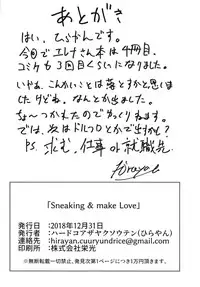 あとがき
はい、ひらやんです。
今回でエレナさん本は4冊目、
コミケも3回目くらいになりました。
いやぁ、こんかいこそは落とすかと思いま
したけどね。なんとか出ました。
ち〜つかれたのでゆっくりねます。
では、次はドルフロとかで出すかも?
PS. 求む、仕事の就職先
Hirayan
「Sneaking & make Love」
発行日：2018年12月31日
発行者：ハードコアザヤクソウテン(ひらやん)
連絡先：hirayan.cuuryundrice@gmail.com
印刷所：株式会社栄光
※無断転載一切禁止、発見次第1ページにつき1万円頂きます。